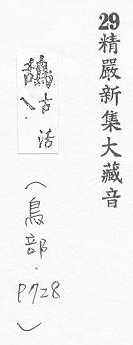 29精嚴新集大藏音
古活
(鳥部.P728)